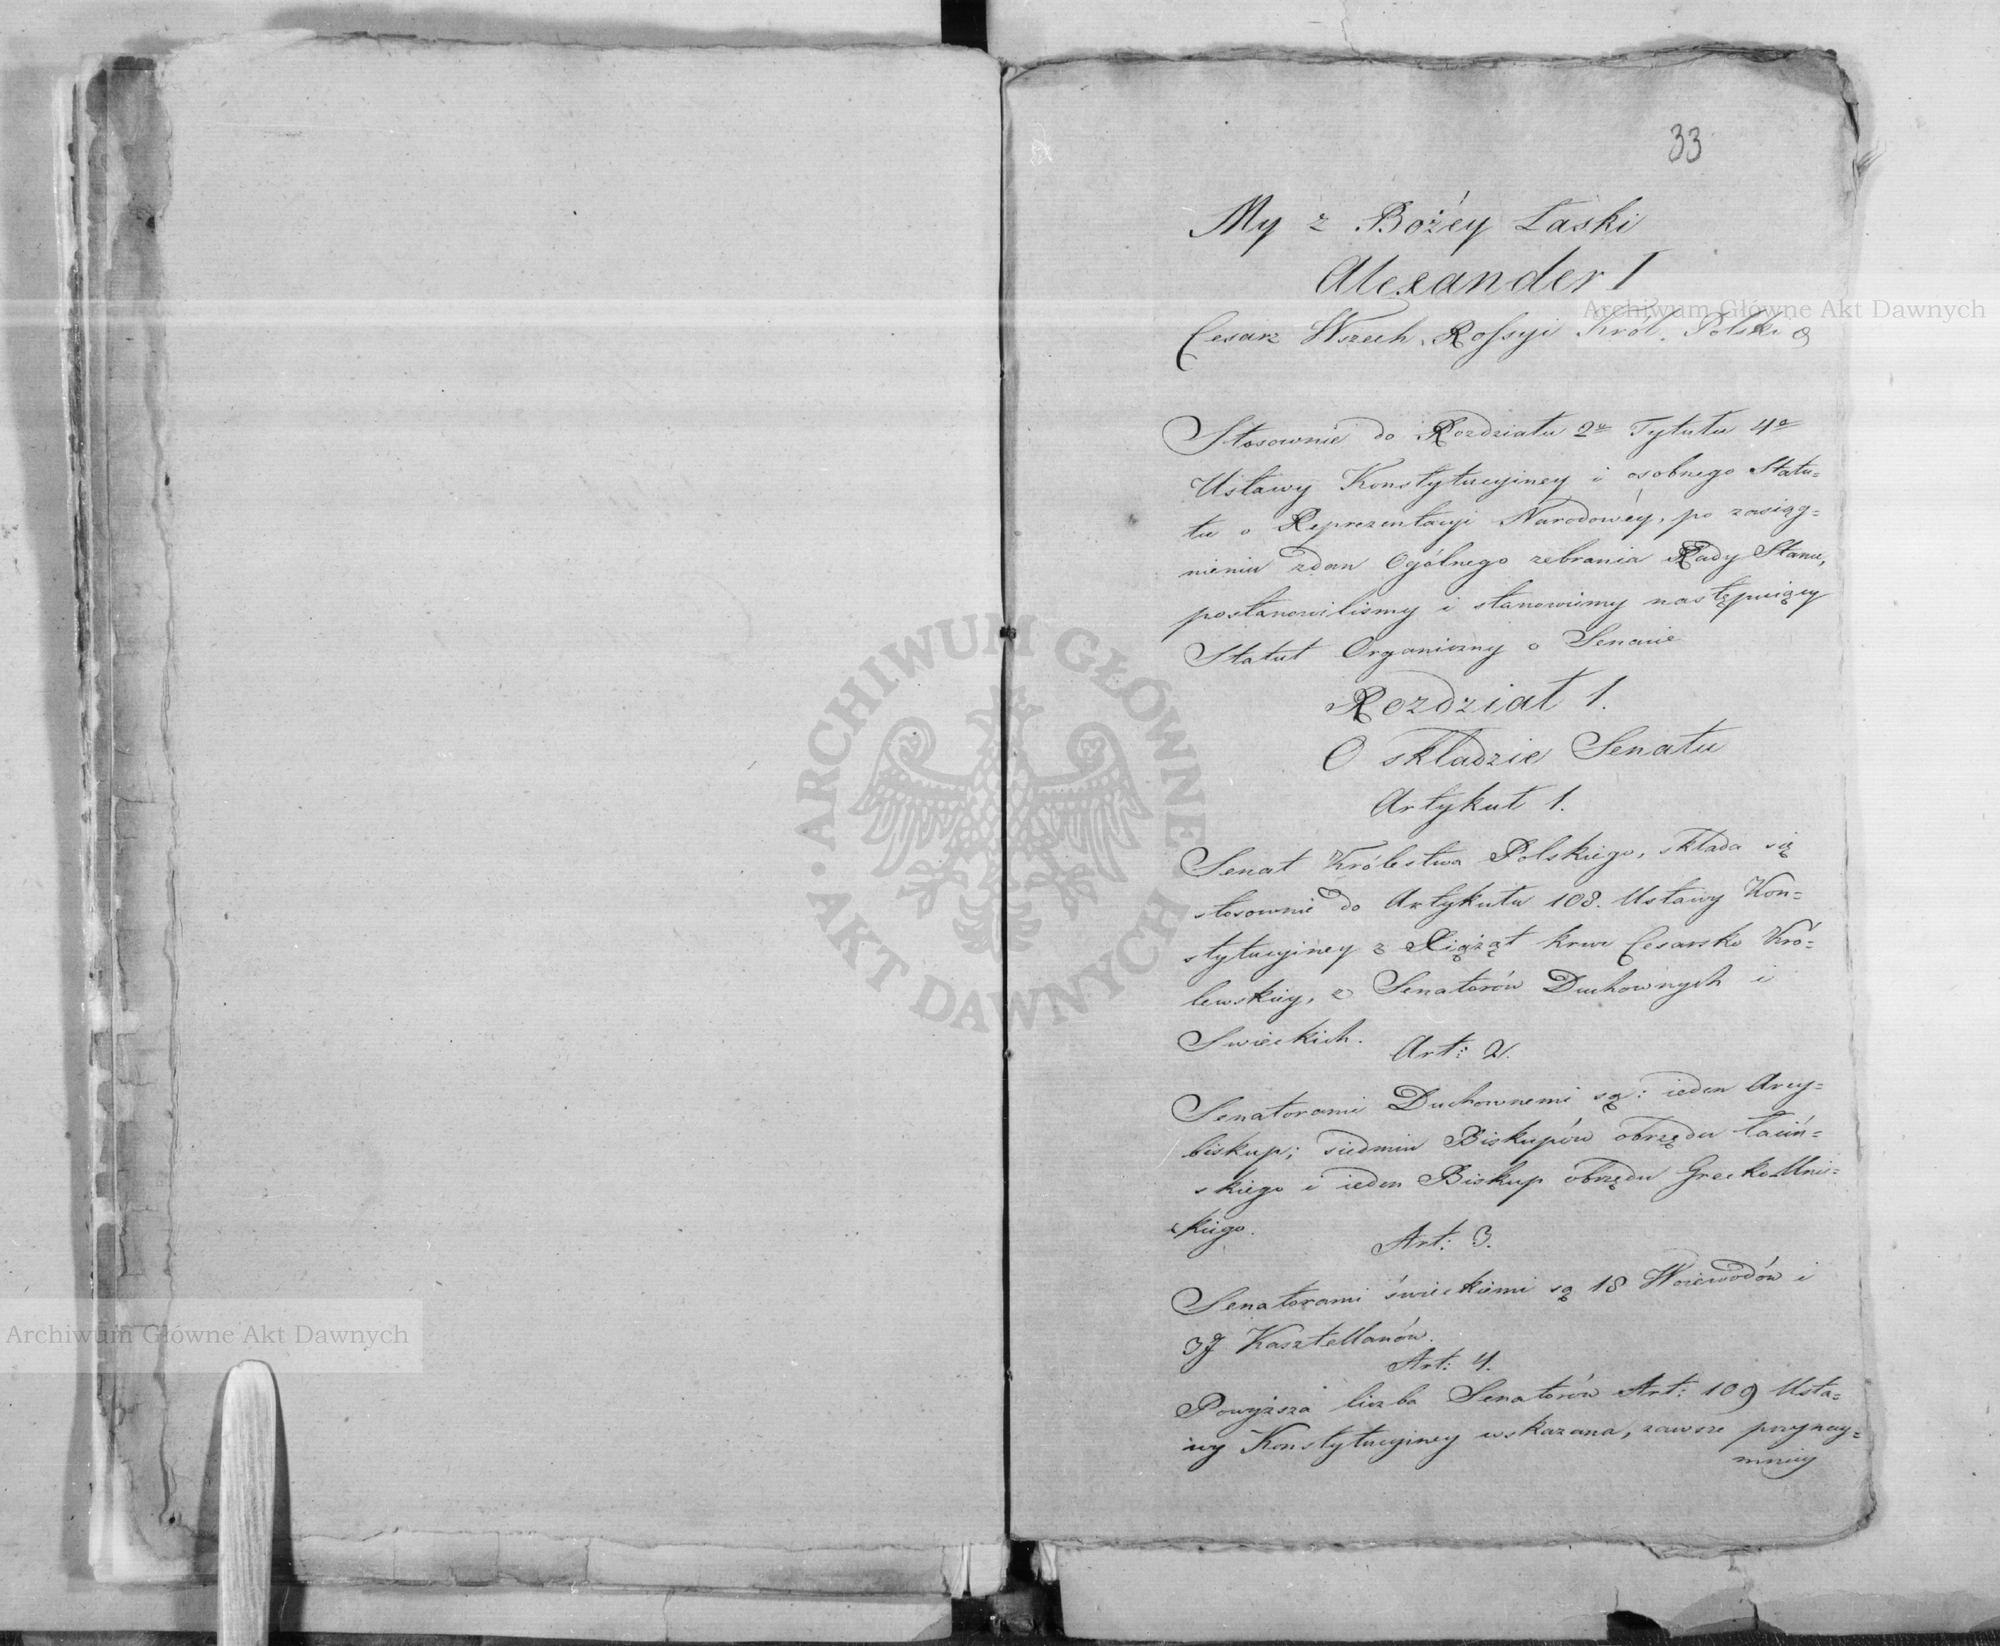 33
My z Bożéy Łaski
Alexander I
Cesarz Wszech Rossyi Król Polski &
Stosownie do Rozdziału 2o Tytułu 4o
Ustawy Konstytucyiney i osobnego Statu=
tu o Reprezentacyi Narodowéy, po zasiąg=
nieniu zdan Ogólnego zebrania Rady Stanu,
postanowilismy i stanowimy następuiący
Statut Organiczny o Senacie
Rozdział 1.
O składzie Senatu
Artykuł 1.
Senat Królestwa Polskiego, składa się
stosownie do Artykułu 108. Ustawy Kon=
stytucyiney z Xiążąt krwi Cesarsko Kró=
lewskiey, z Senatorów Duchownych i
Swieckich.
Art: 2.
Senatorami Duchownemi są: ieden Arcy=
biskup; siedmiu Biskupów obrzędu łaciń=
skiego i ieden Biskup obrzędu Grecko Uni=
ckiego.
Art: 3.
Senatorami świeckiemi są 18 Woiewodów i
37 Kasztellanów.
Art: 4.
Powyższa liczba Senatorów Art: 109 Usta=
wy Konstytucyiney wskazana, zawsze przynay=
mniey
Archiwum Główne Akt Dawnych
Archiwum Główne Akt Dawnych
ARCHIWUM GŁÓWNE AKT DAWNYCH